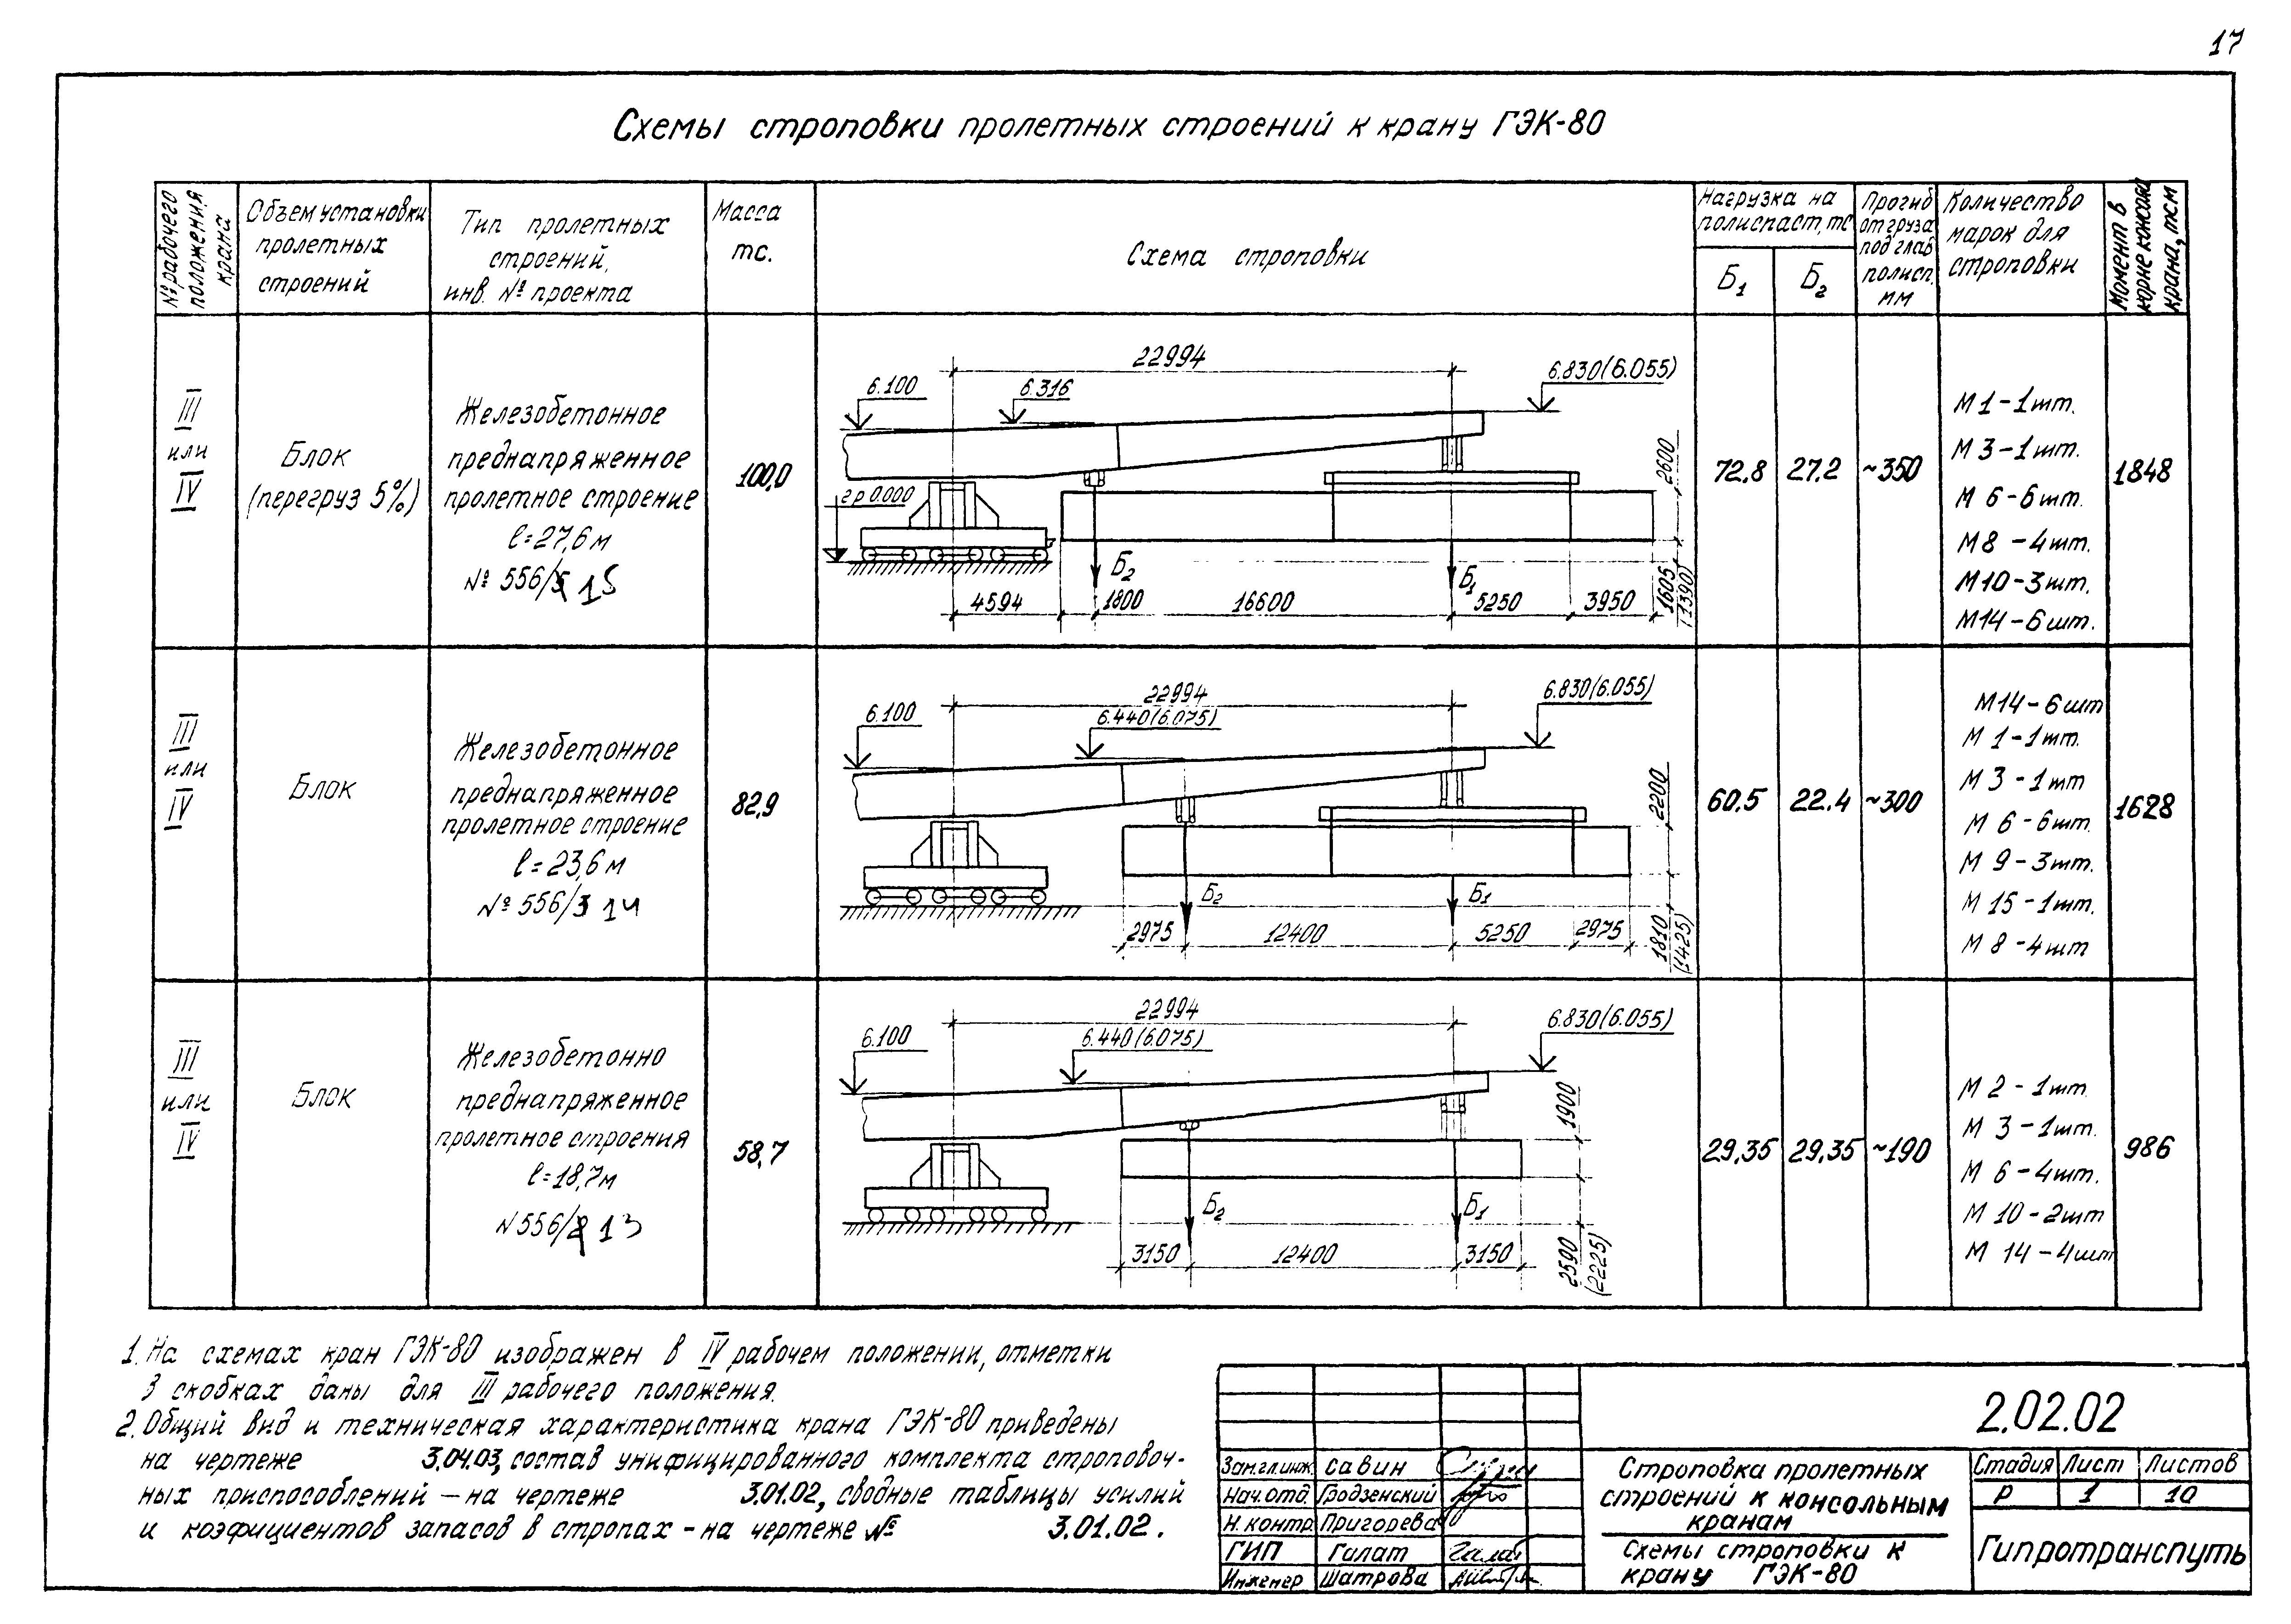 17
Схемы строповки пролетных строений к крану ГЭК-80
№ рабочего
положения
крана
Объем установки
пролетных
строений
Тип пролетных
строений,
инв. № проекта
Масса
тс.
Схема строповки
Нагрузка на
полиспаст, тс
Б1
Б2
Прогиб
от груза
под глав
полисп.
мм
Количество
марок для
строповки
Момент в
корне консоли
крана, тсм
III
или
IV
Блок
(перегруз 5%)
Железобетонное
преднапряженное
пролетное строение
ℓ=27,6 м
№ 556/ 15
100,0
22994
6.100
6.316
6.830(6.055)
гр 0.000
2600
Б2
Б1
4594
1800
16600
5250
3950
1605
(1390)
72.8
27.2
~350
М 1 - 1 шт.
М 3 - 1 шт.
М 6 - 6 шт.
М 8 - 4 шт.
М 10 - 3 шт.
М 14 - 6 шт.
1848
III
или
IV
Блок
Железобетонное
преднапряженное
пролетное строение
ℓ=23,6 м
№ 556/3 14
82,9
22994
6.100
6.440(6.075)
6.830(6.055)
2200
Б2
Б1
2975
12400
5250
2975
1810
(1425)
60.5
22.4
~300
М 14 - 6 шт
М 1 - 1 шт.
М 3 - 1 шт
М 6 - 6 шт.
М 9 - 3 шт.
М 15 - 1 шт.
М 8 - 4 шт
1628
III
или
IV
Блок
Железобетонно
преднапряженное
пролетное строения
ℓ=18,7м
N 556/2 13
58,7
22994
6.100
6.440(6.075)
6.830(6.055)
1900
Б2
Б1
3150
12400
3150
2590
(2225)
29.35
29.35
~190
М 2 - 1 шт.
М 3 - 1 шт.
М 6 - 4 шт.
М 10 - 2 шт
М 14 - 4 шт
986
1. На схемах кран ГЭК-80 изображен в IV рабочем положении, отметки
в скобках даны для III рабочего положения.
2. Общий вид и техническая характеристика крана ГЭК-80 приведены
на чертеже 3.04.03, состав унифицированного комплекта строповоч-
ных приспособлений - на чертеже 3.01.02, сводные таблицы усилий
и коэфициентов запасов в стропах - на чертеже № 3.01.02.
Зам.гл.инж. Савин
Нач.отд. Гродзенский
Н.контр. Пригорева
ГИП Галат
Инженер Шатрова
2.02.02
Строповка пролетных
строений к консольным
кранам
Схемы строповки к
крану ГЭК-80
Стадия Лист Листов
Р 1 10
Гипротранспуть